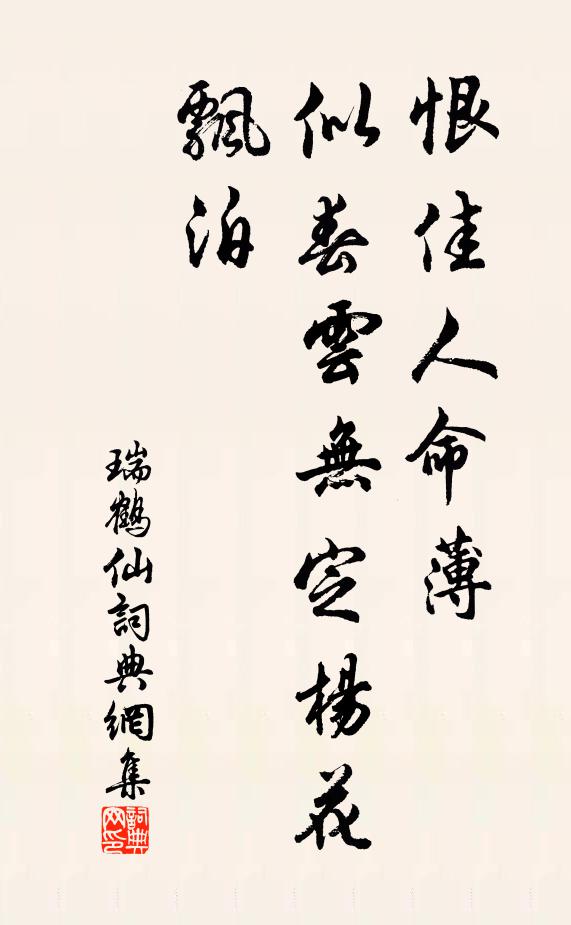 恨佳人命薄
似春雲無定楊花
飄泊
瑞鶴仙詞典網集
詞典
网印